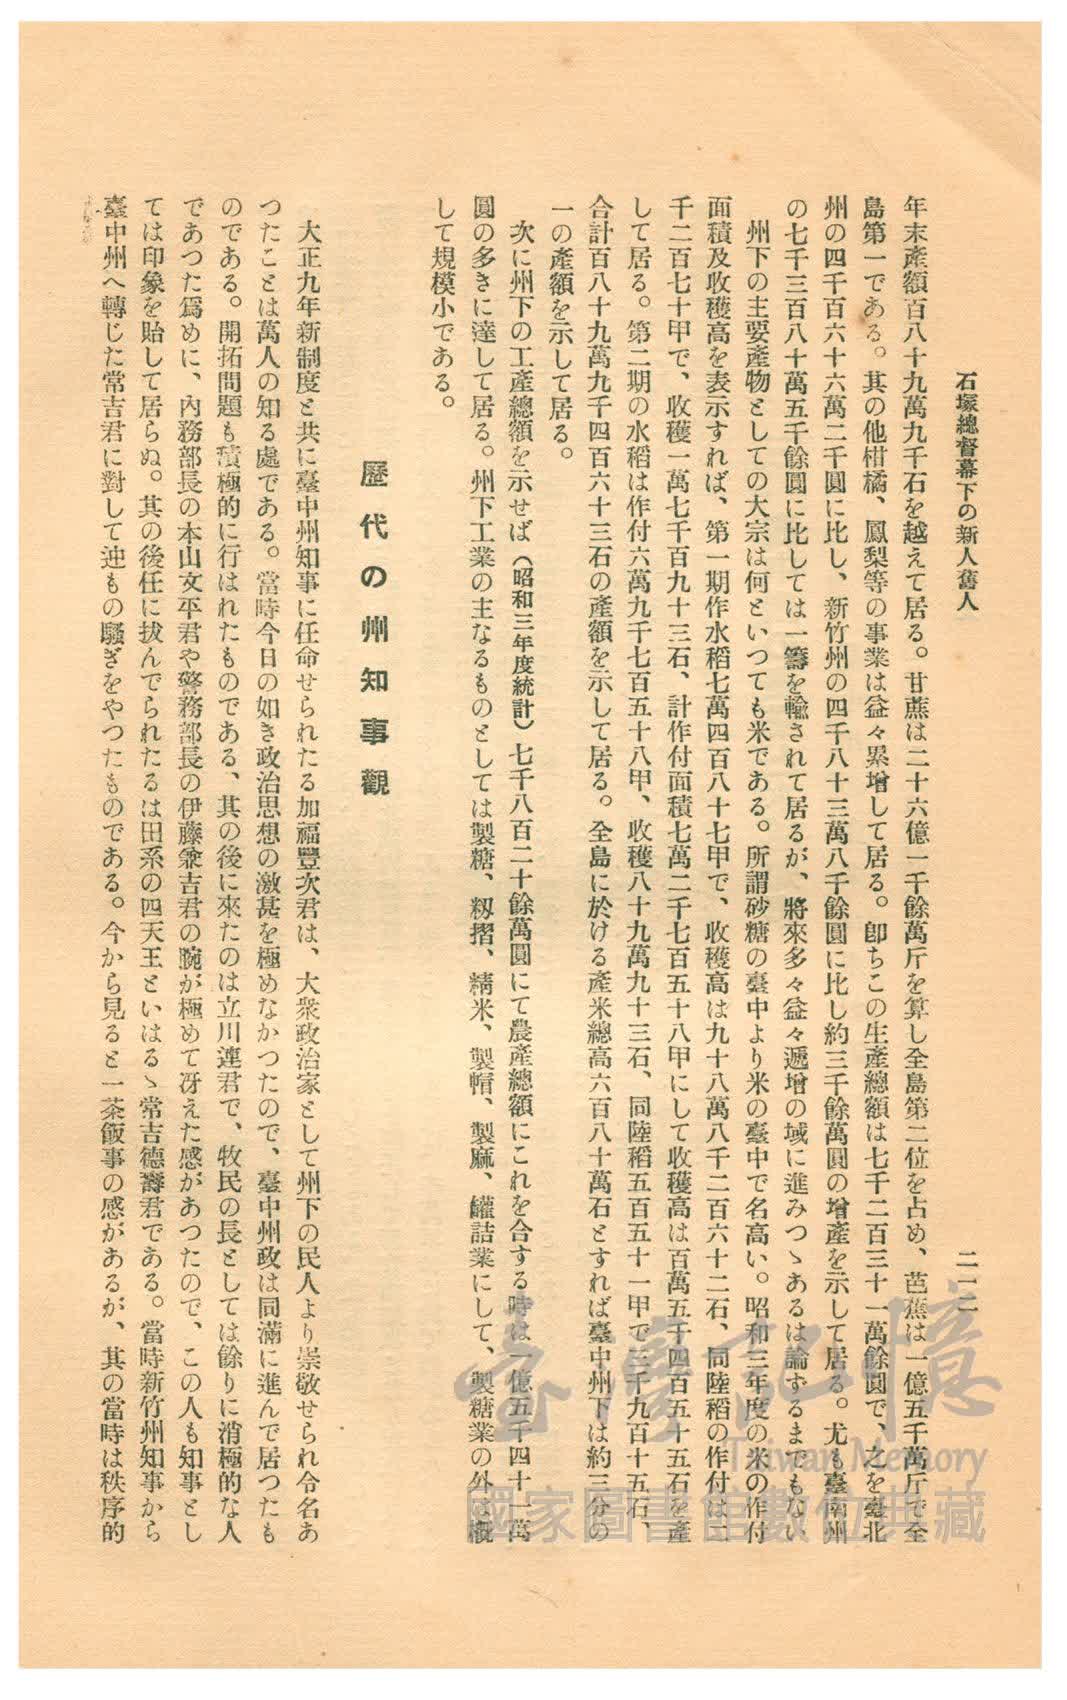 石塚總督幕下の新人舊人
二一二
年末產額百八十九萬九千石を越えて居る。甘蔗は二十六億一千餘萬斤を算し全島第二位を占め、芭蕉は一億五千萬斤で全
島第一である。其の他柑橘、鳳梨等の事業は益々累增して居る。卽ちこの生產總額は七千二百三十一萬餘圓で、之を臺北
州の四千百六十六萬二千圓に比し、新竹州の四千八十三萬八千餘圓に比し約三千餘萬圓の增產を示して居る。尤も臺南州
の七千三百八十萬五千餘圓に比しては一籌を輸されて居るが、將來多々益々遞增の域に進みつゝあるは論ずるまでもない
州下の主要產物としての大宗は何といつても米である。所謂砂糖の臺中より米の臺中で名高い。昭和三年度の米の作付
面積及收穫高を表示すれば、第一期作水稻七萬四百八十七甲で、收穫高は九十八萬八千二百六十二石、同陸稻の作付は二
千二百七十甲で、收穫一萬七千百九十三石、計作付面積七萬二千七百五十八甲にして收穫高は百萬五千四百五十五石を產
して居る。第二期の水稻は作付六萬九千七百五十八甲、收穫八十九萬九十三石、同陸稻五百五十一甲で三千九百十五石、
合計百八十九萬九千四百六十三石の產額を示して居る。全島に於ける產米總高六百八十萬石とすれば臺中州下は約三分の
一の產額を示して居る。
次に州下の工產總額を示せば（昭和三年度統計）七千八百二十餘萬圓にて農產總額にこれを合する時は一億五千四十一萬
圓の多きに達して居る。州下工業の主なるものとしては製糖、籾摺、精米、製帽、製麻、罐詰業にして、製糖業の外は槪
して規模小である。
歷代の州知事觀
大正九年新制度と共に臺中州知事に任命せられたる加福豐次君は、大衆政治家として州下の民人より崇敬せられ令名あ
つたことは萬人の知る處である。當時今日の如き政治思想の激甚を極めなかつたので、臺中州政は同滿に進んで居つたも
のである。開拓問題も積極的に行はれたものである、其の後に來たのは立川連君で、牧民の長としては餘りに消極的な人
であつた爲めに、內務部長の本山文平君や警務部長の伊藤兼吉君の腕が極めて冴えた感があつたので、この人も知事とし
ては印象を貽して居らぬ。其の後任に拔んでられたるは田系の四天王といはるゝ常吉德壽君である。當時新竹州知事から
臺中州へ轉じた常吉君に對して迚もの騷ぎをやつたものである。今から見ると一茶飯事の感があるが、其の當時は秩序的
臺灣記憶
Taiwan Memory
國家圖書館數位典藏